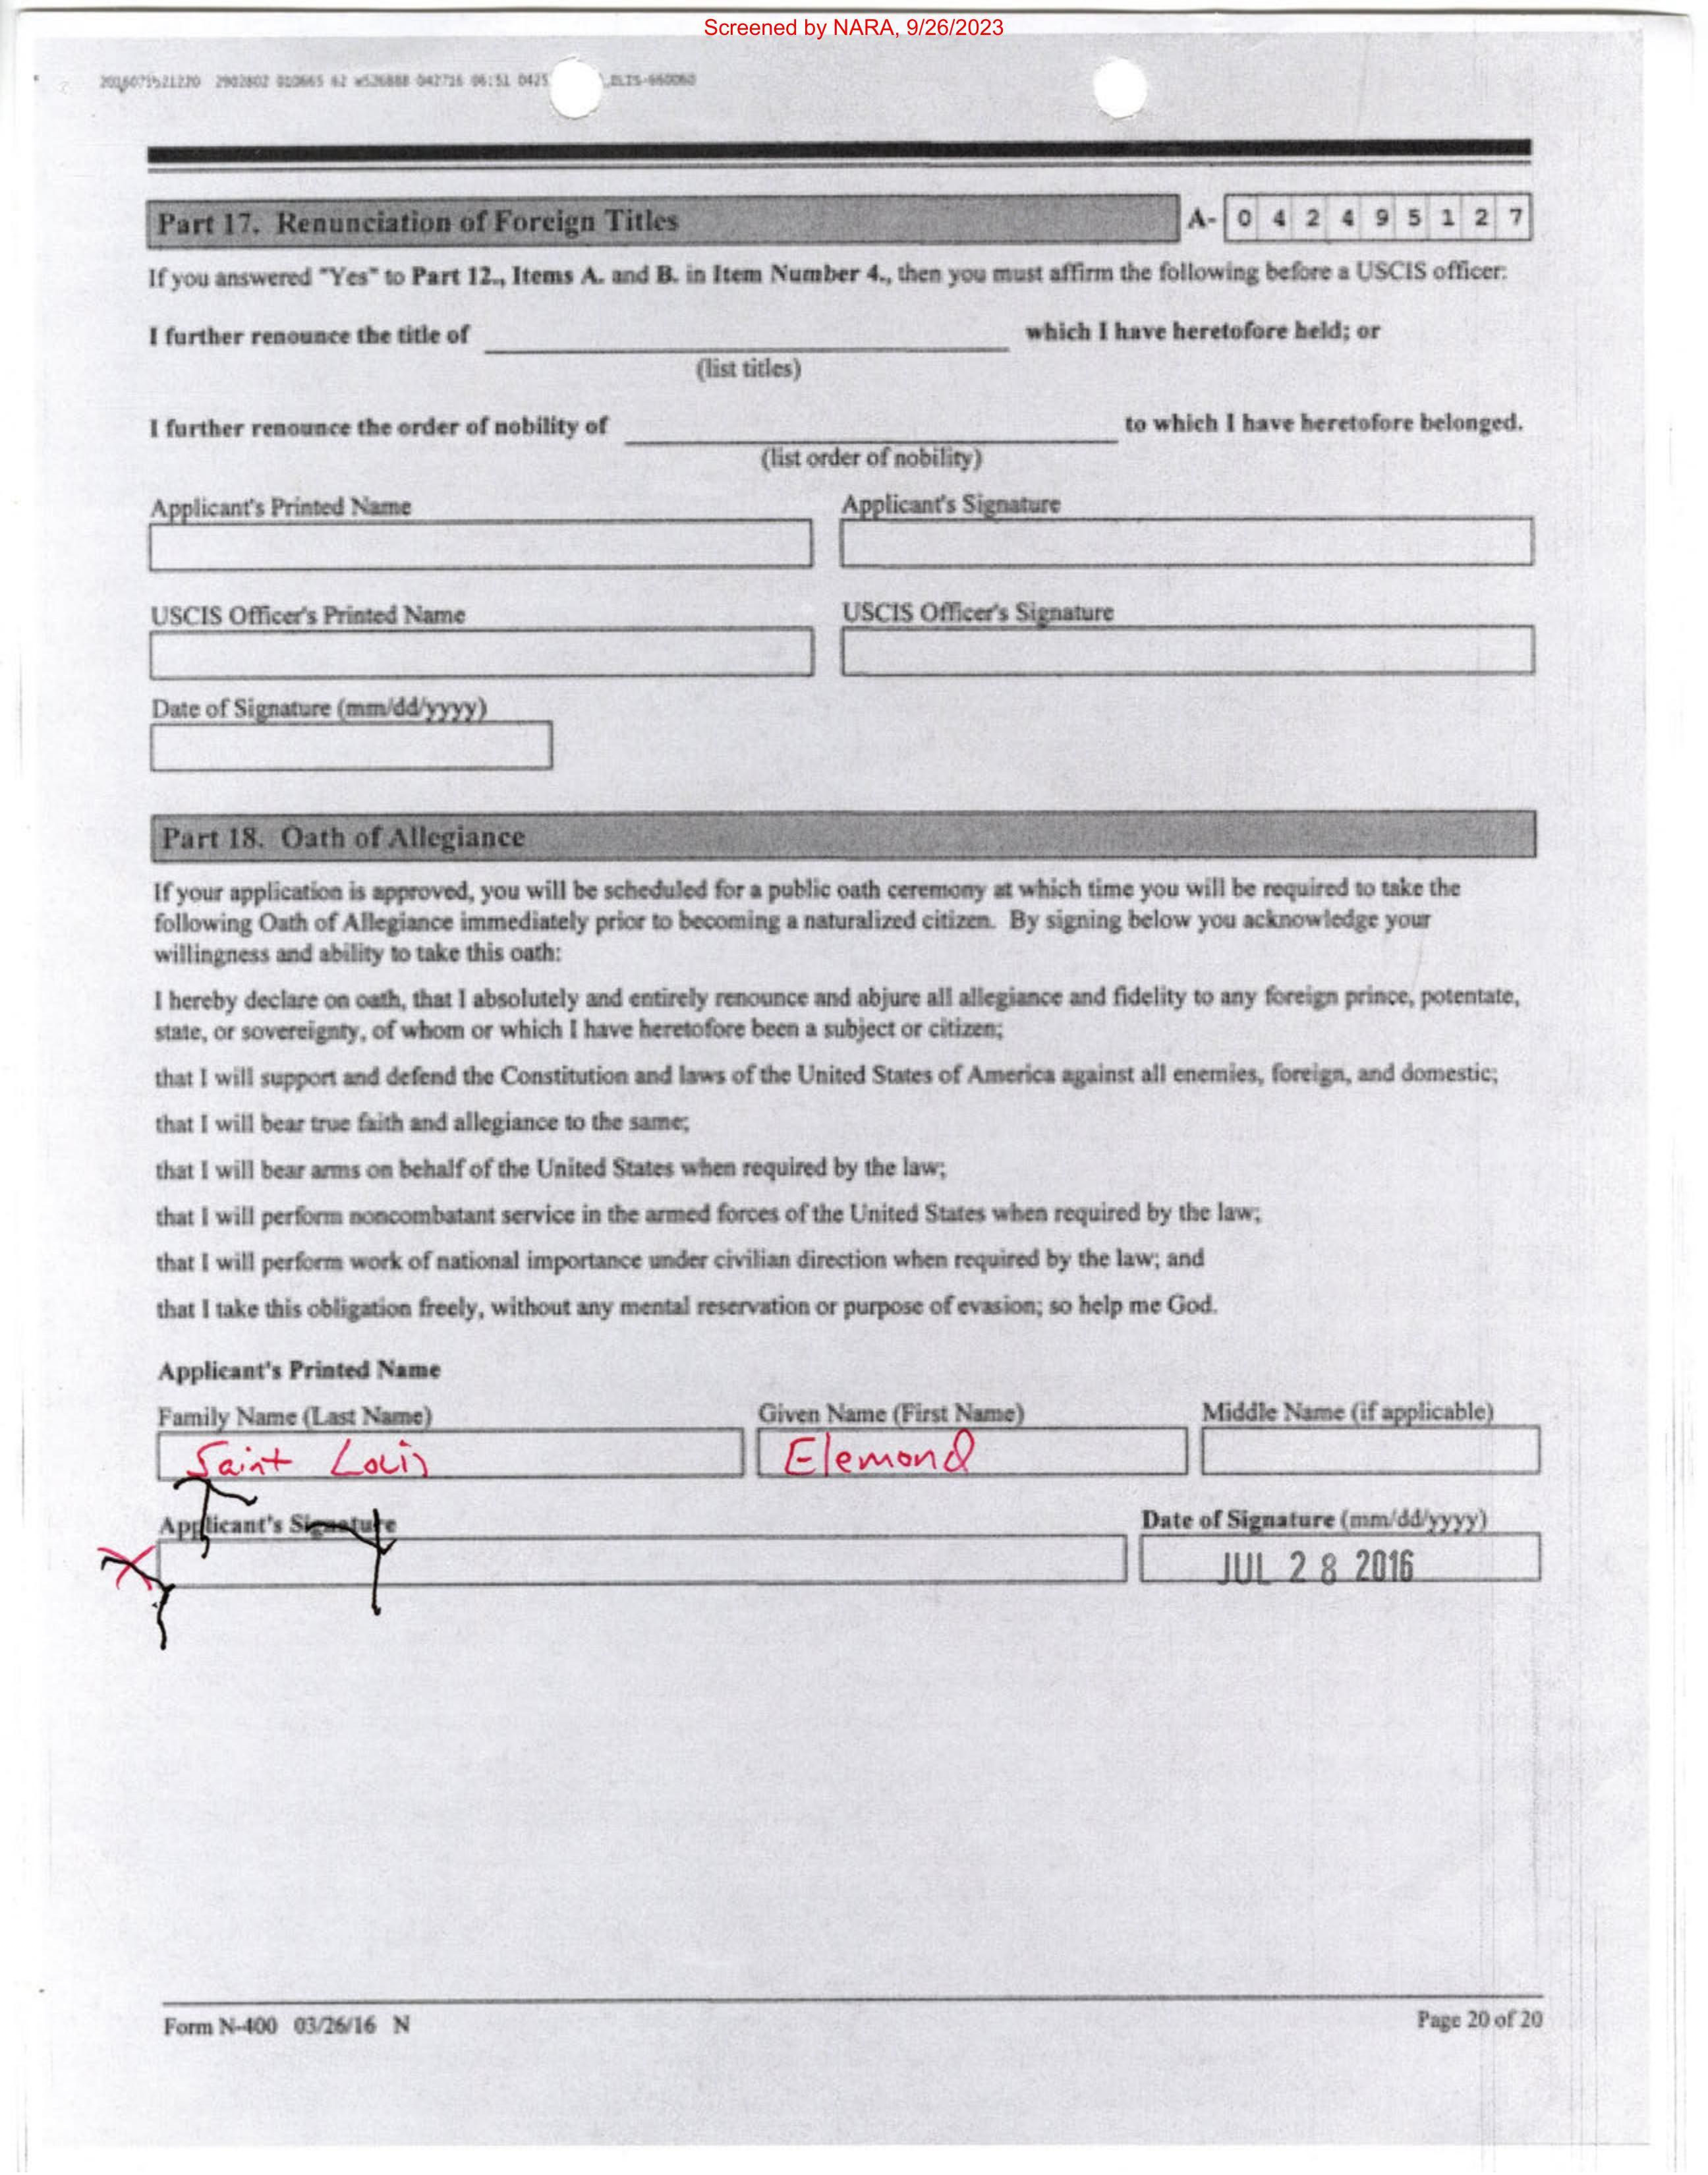 Screened by NARA, 9/26/2023
Part 17. Renunciation of Foreign Titles A- 0 4 2 4 9 5 1 2 7
If you answered "Yes" to Part 12., Items A. and B. in Item Number 4., then you must affirm the following before a USCIS officer:
I further renounce the title of which I have heretofore held; or
(list titles)
I further renounce the order of nobility of to which I have heretofore belonged.
(list order of nobility)
Applicant's Printed Name Applicant's Signature
USCIS Officer's Printed Name USCIS Officer's Signature
Date of Signature (mm/dd/yyyy)
Part 18. Oath of Allegiance
If your application is approved, you will be scheduled for a public oath ceremony at which time you will be required to take the
following Oath of Allegiance immediately prior to becoming a naturalized citizen. By signing below you acknowledge your
willingness and ability to take this oath:
I hereby declare on oath, that I absolutely and entirely renounce and abjure all allegiance and fidelity to any foreign prince, potentate,
state, or sovereignty, of whom or which I have heretofore been a subject or citizen;
that I will support and defend the Constitution and laws of the United States of America against all enemies, foreign, and domestic;
that I will bear true faith and allegiance to the same;
that I will bear arms on behalf of the United States when required by the law;
that I will perform noncombatant service in the armed forces of the United States when required by the law;
that I will perform work of national importance under civilian direction when required by the law; and
that I take this obligation freely, without any mental reservation or purpose of evasion; so help me God.
Applicant's Printed Name
Family Name (Last Name) Given Name (First Name) Middle Name (if applicable)
Saint Louis Elemond
Applicant's Signature Date of Signature (mm/dd/yyyy)
X JUL 28 2016
Form N-400 03/26/16 N Page 20 of 20